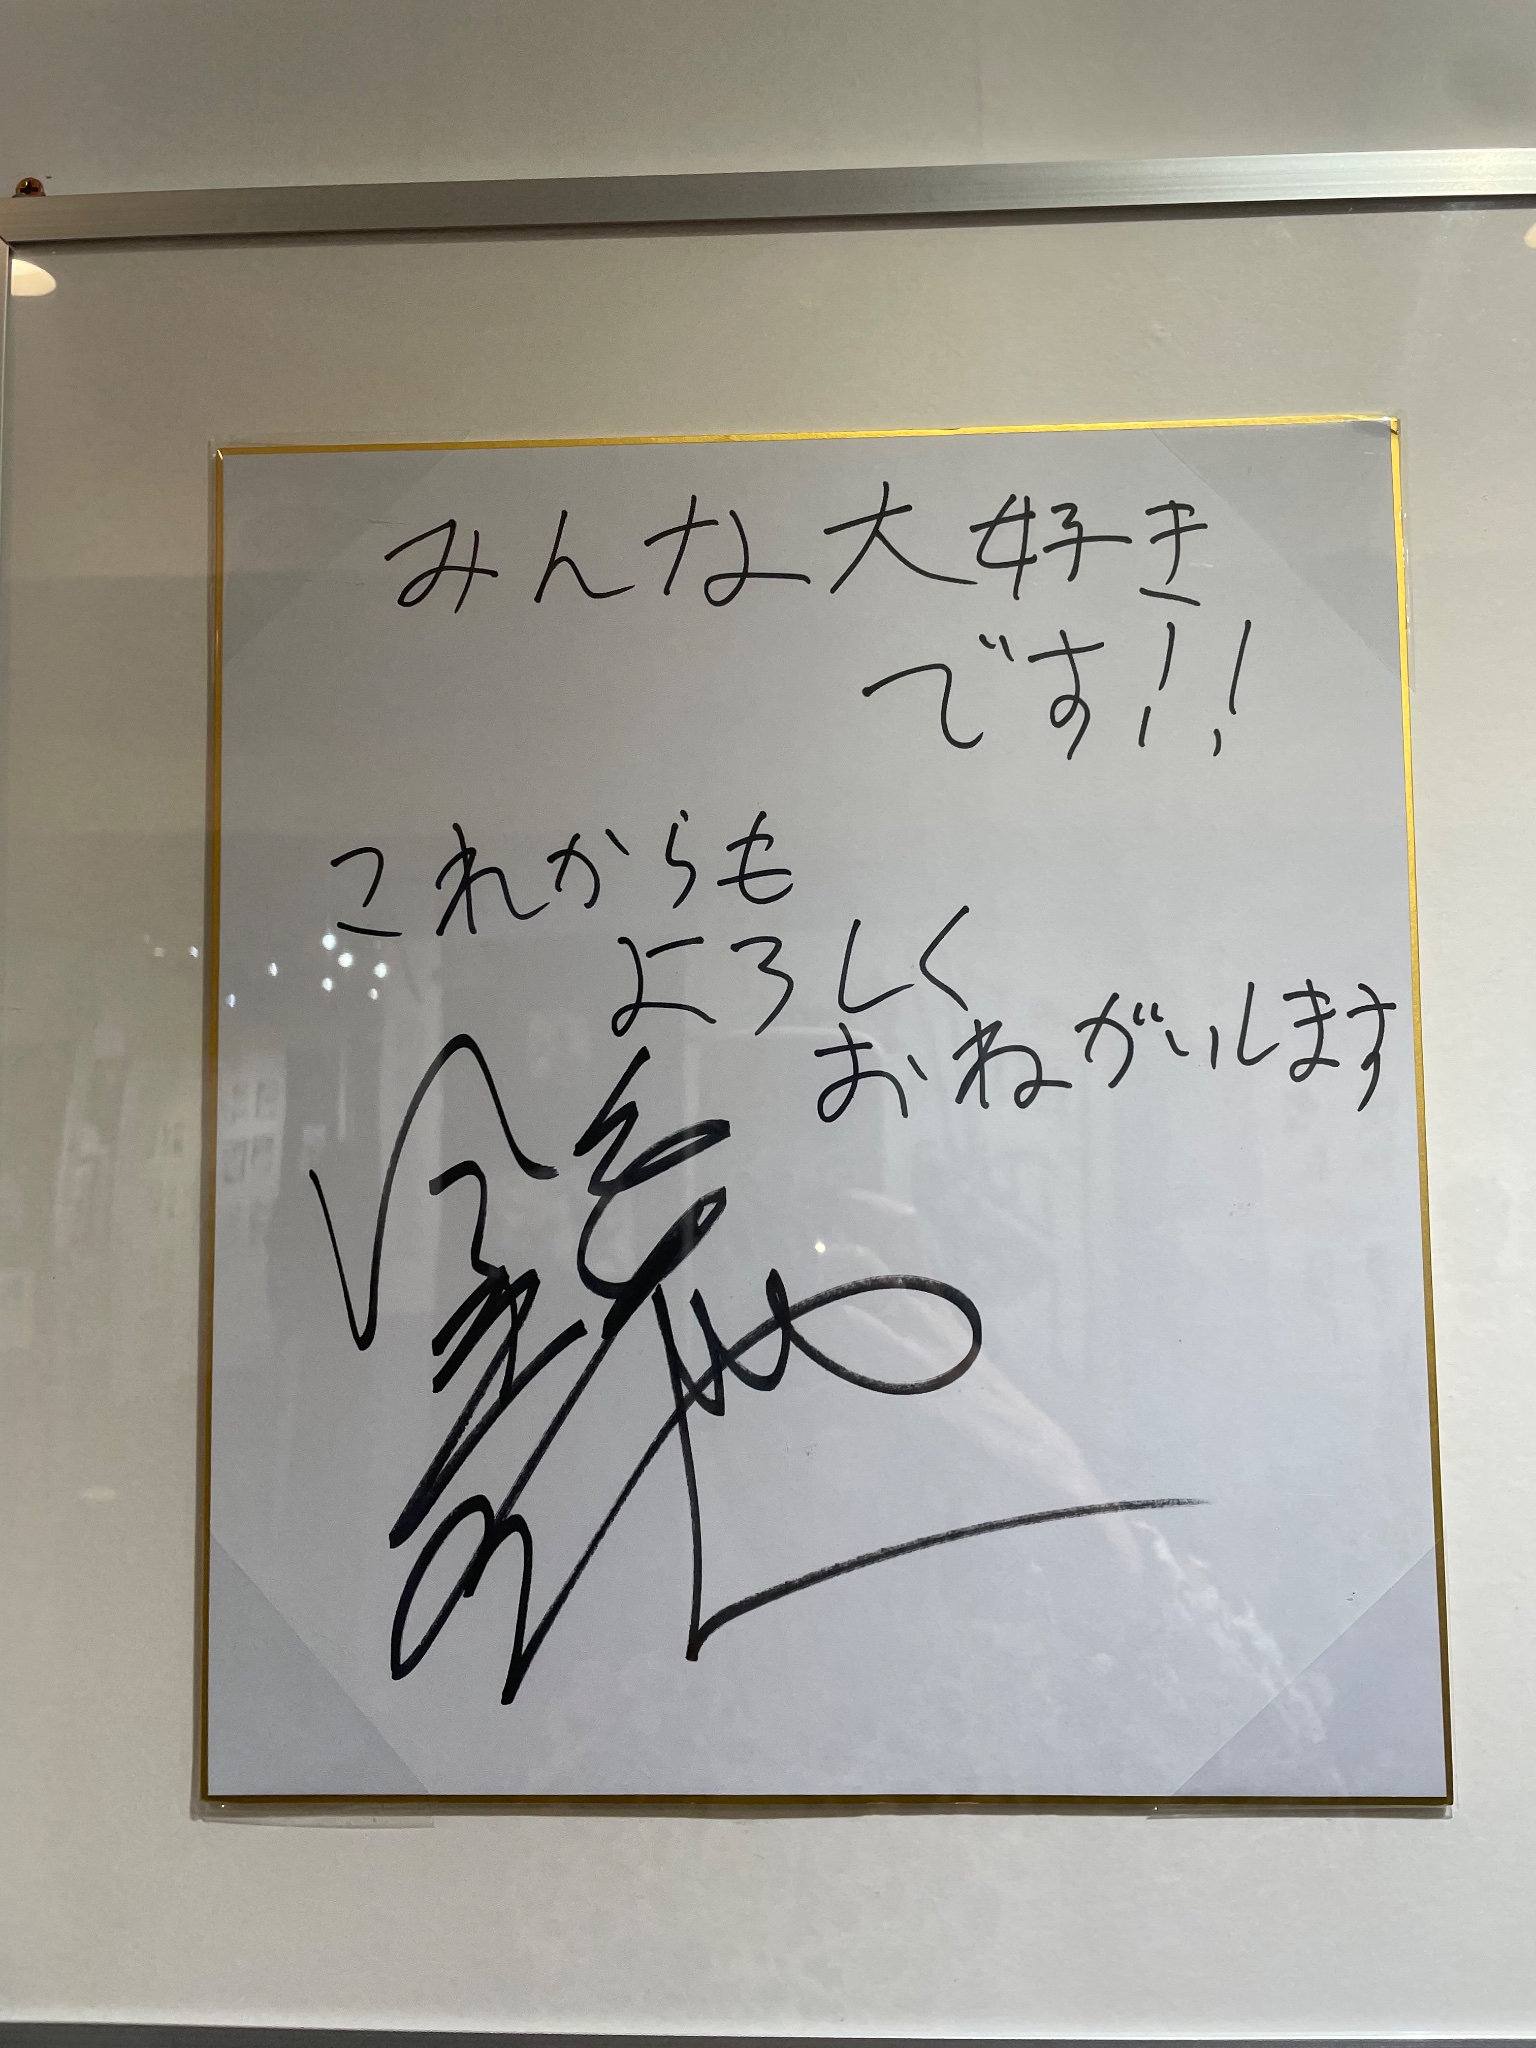 みんな大好き
です!!
これからも
よろしく
おねがいします